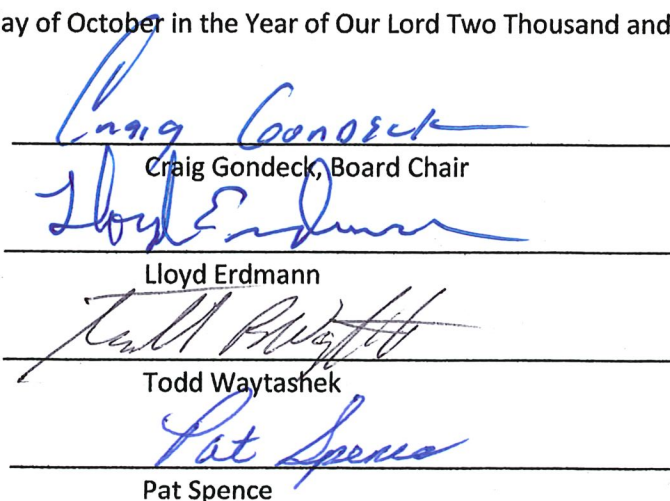 ay of October in the Year of Our Lord Two Thousand and
Craig Gondeck
Craig Gondeck, Board Chair
Lloyd Erdmann
Lloyd Erdmann
Todd B Waytashek
Todd Waytashek
Pat Spence
Pat Spence